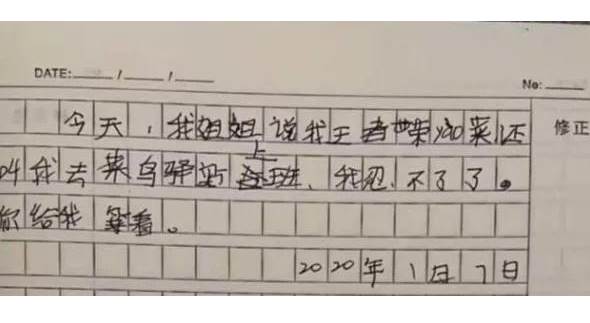 DATE:____/____/____
No:____
今天,我姐姐说我王者荣yao菜还
叫我去菜鸟驿站上班、我忍、不了了。
你给我 等着。
2020年1月7日
修正